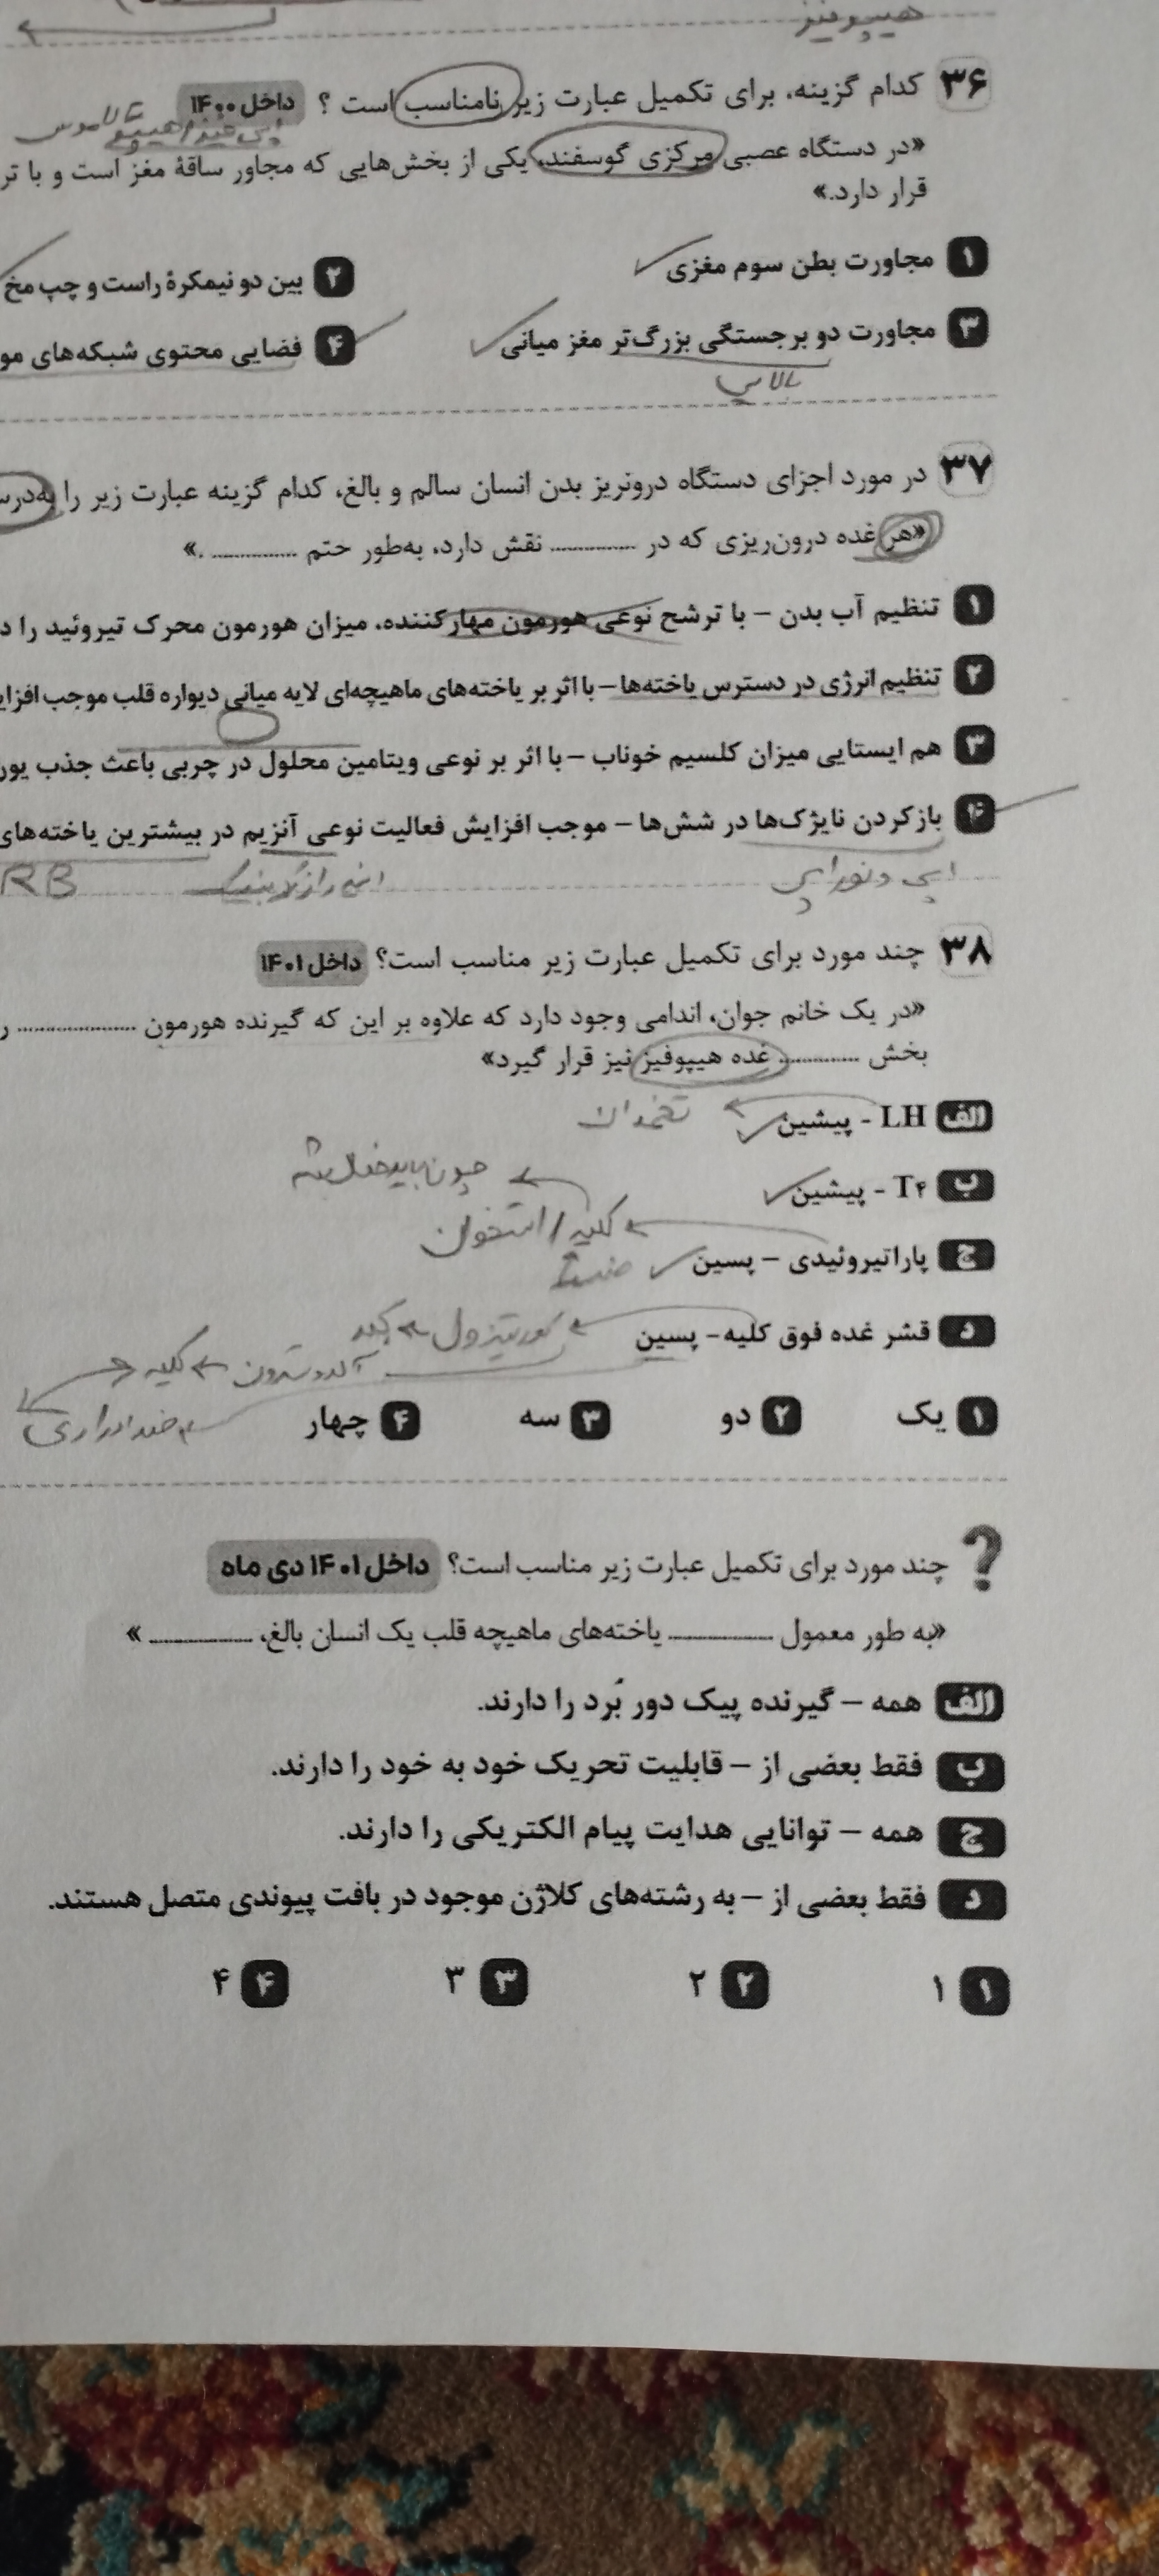 هیپوفیز
۳۶ کدام گزینه، برای تکمیل عبارت زیر نامناسب است ؟ داخل ۱۴۰۰
تالاموس
اپی فیز / هیپو
«در دستگاه عصبی مرکزی گوسفند، یکی از بخش‌هایی که مجاور ساقهٔ مغز است و با تر
قرار دارد.»
۱ مجاورت بطن سوم مغزی
۲ بین دو نیمکرهٔ راست و چپ مخ
۳ مجاورت دو برجستگی بزرگ‌تر مغز میانی
۴ فضایی محتوی شبکه‌های مو
بالایی
۳۷ در مورد اجزای دستگاه درون‌ریز بدن انسان سالم و بالغ، کدام گزینه عبارت زیر را به‌درس
«هر غده درون‌ریزی که در .............. نقش دارد، به‌طور حتم .............. .»
۱ تنظیم آب بدن – با ترشح نوعی هورمون مهارکننده، میزان هورمون محرک تیروئید را د
۲ تنظیم انرژی در دسترس یاخته‌ها – با اثر بر یاخته‌های ماهیچه‌ای لایه میانی دیواره قلب موجب افزای
۳ هم ایستایی میزان کلسیم خوناب – با اثر بر نوعی ویتامین محلول در چربی باعث جذب یون
۴ بازکردن نایژک‌ها در شش‌ها – موجب افزایش فعالیت نوعی آنزیم در بیشترین یاخته‌های
اپی و نوراپی
RB
۳۸ چند مورد برای تکمیل عبارت زیر مناسب است؟ داخل ۱۴۰۱
«در یک خانم جوان، اندامی وجود دارد که علاوه بر این که گیرنده هورمون .................... ر
بخش .............. غده هیپوفیز نیز قرار گیرد»
الف LH - پیشین
تخمدان
ب T۴ - پیشین
کلیه / استخوان
ج پاراتیروئیدی – پسین
د قشر غده فوق کلیه- پسین
کورتیزول ← کبد
آلدوسترون ← کلیه
ضد ادراری
۱ یک ۲ دو ۳ سه ۴ چهار
? چند مورد برای تکمیل عبارت زیر مناسب است؟ داخل ۱۴۰۱ دی ماه
«به طور معمول .............. یاخته‌های ماهیچه قلب یک انسان بالغ، .............. »
الف همه – گیرنده پیک دور بُرد را دارند.
ب فقط بعضی از – قابلیت تحریک خود به خود را دارند.
ج همه – توانایی هدایت پیام الکتریکی را دارند.
د فقط بعضی از – به رشته‌های کلاژن موجود در بافت پیوندی متصل هستند.
۱ ۱ ۲ ۲ ۳ ۳ ۴ ۴